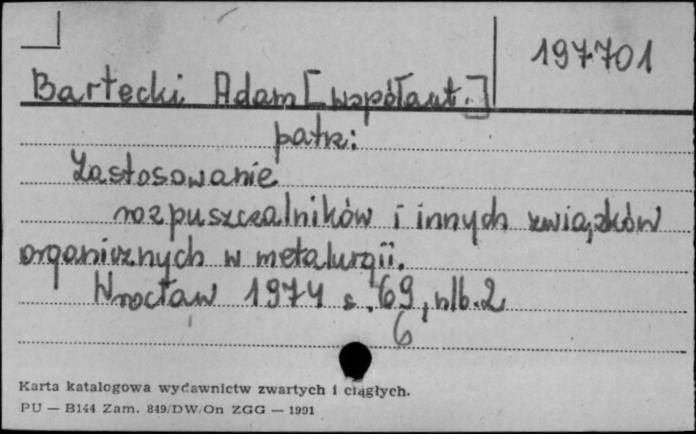 197701
Bartecki Adam [współaut.]
patrz:
Zastosowanie
rozpuszczalników i innych związków
organicznych w metalurgii.
Wrocław 1974 s. 69, nlb. 2
6
Karta katalogowa wydawnictw zwartych i ciągłych.
PU — B144 Zam. 849/DW/On ZGG — 1991